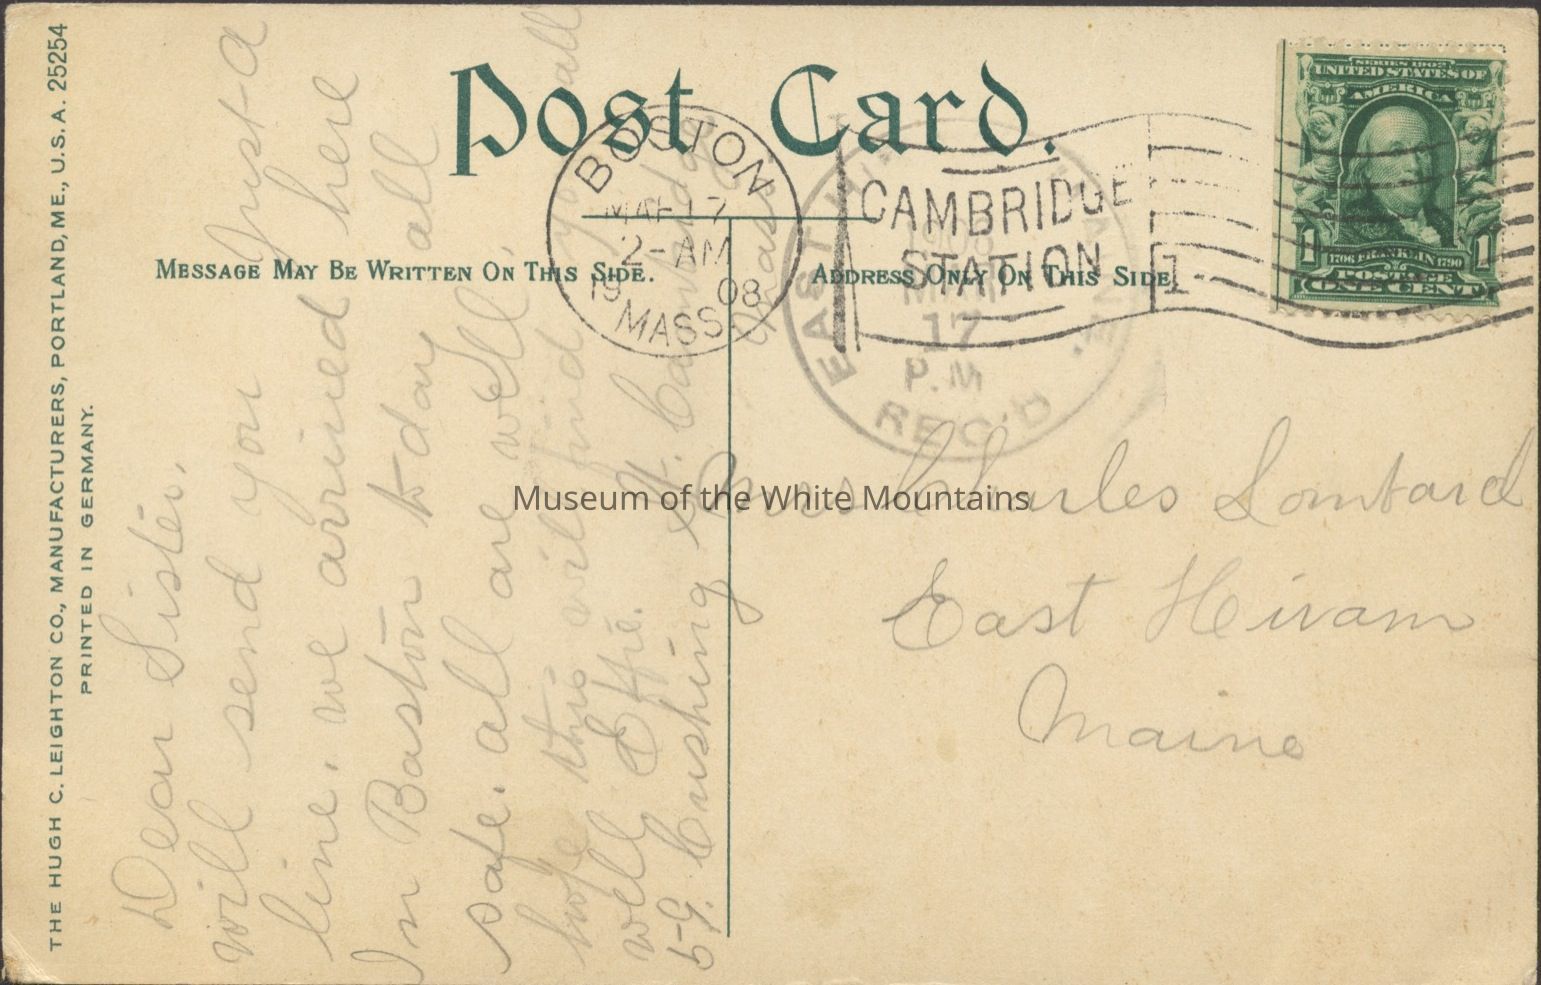 THE HUGH C. LEIGHTON CO., MANUFACTURERS, PORTLAND, ME., U.S.A. 25254
PRINTED IN GERMANY.
Post Card.
MESSAGE MAY BE WRITTEN ON THIS SIDE.
ADDRESS ONLY ON THIS SIDE
Dear Sister.
will send you Just a
line. we arrived here
In Baston to day all
safe. all are well.
hope this will find you all
well Effie.
59. Cushing St. Cambridge
Mass
BOSTON
MAR 17
2-AM
1908
MASS.
CAMBRIDGE
STATION
1
EAST HIRAM, ME.
1908
MAR
17
P.M
REC'D
SERIES 1902
UNITED STATES OF
AMERICA
1 1
1706 FRANKLIN 1790
POSTAGE
ONE CENT
Charles Lombard
East Hiram
Maine
Museum of the White Mountains